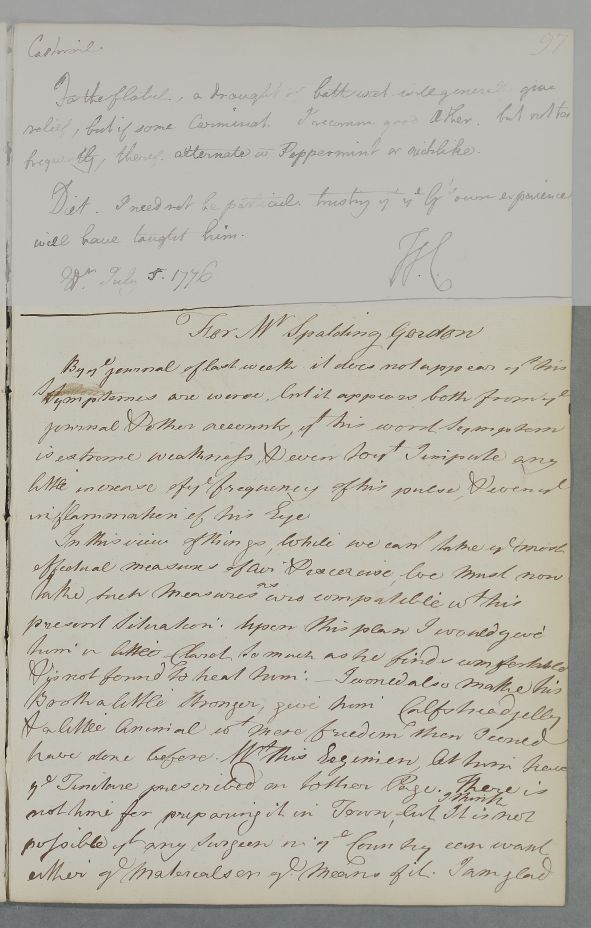 Carminl. 97
For the flatul., a draught of hott wat. will generally give
relief, but if some Carminat. I recomm. good Æther. but not too
frequently, theref. alternate wt Peppermint or suchlike.
Diet. I need not be particul. trusting yt ye Gs own experience
will have taught him.
Edr. July 8. 1776 W.C.
For Mr Spalding Gordon
By ye journal of last week it does not appear yt his
Symptomes are worse, but it appears both from ye
journal & other accounts, yt his worst Symptom
is extreme weakness, & even to yt I impute any
little increase of ye frequency of his pulse, & even ye
inflammation of his Eye
In this view of things, while we cant take ye most
effectual measures of air & exercise, we must now
take such measures as are compatible wt his
present Situation. Upon this plan I would give
him a little Claret so much as he finds comfortable
& is not found to heat him. — I would also make his
Broth a little stronger, give him Calfs head jelly
& a little animal wt more freedom than I
have done before. Wt this Regimen, let him have
ye Tincture prescribed on tother Page. There is
not time for preparing it in Town, but I think It is not
possible yt any surgeon in ye Country can want
either ye Materials or ye Means of it. I am glad